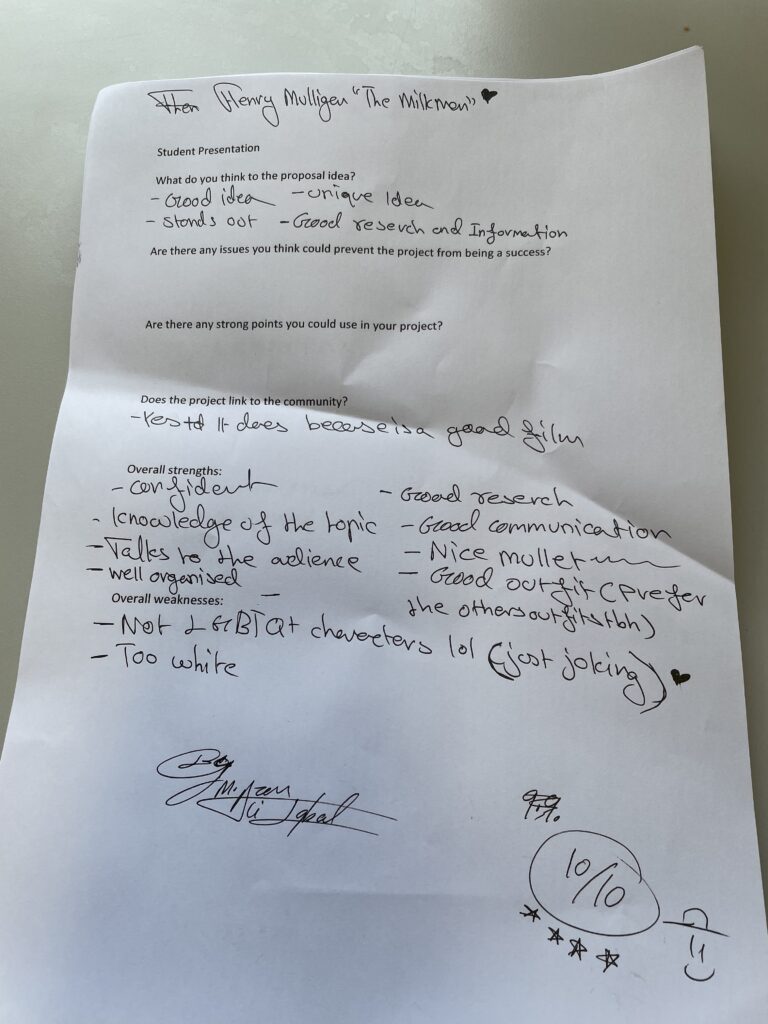 Then Henry Mulligen "The Milkmen" ♥
Student Presentation
What do you think to the proposal idea?
- Good idea - unique Idea
- Stands out - Good reserch and Information
Are there any issues you think could prevent the project from being a success?
Are there any strong points you could use in your project?
Does the project link to the community?
- Yes It does becase is a good film
Overall strengths:
- confident
- knowledge of the topic
- Talks to the audience
- well organised
- Good reserch
- Good communication
- Nice mullet
- Good outfit (Prefer
the others outfits tbh)
Overall weaknesses:
- Not LGBTQ+ charecters lol (just joking) ♥
- Too white
By
10/10